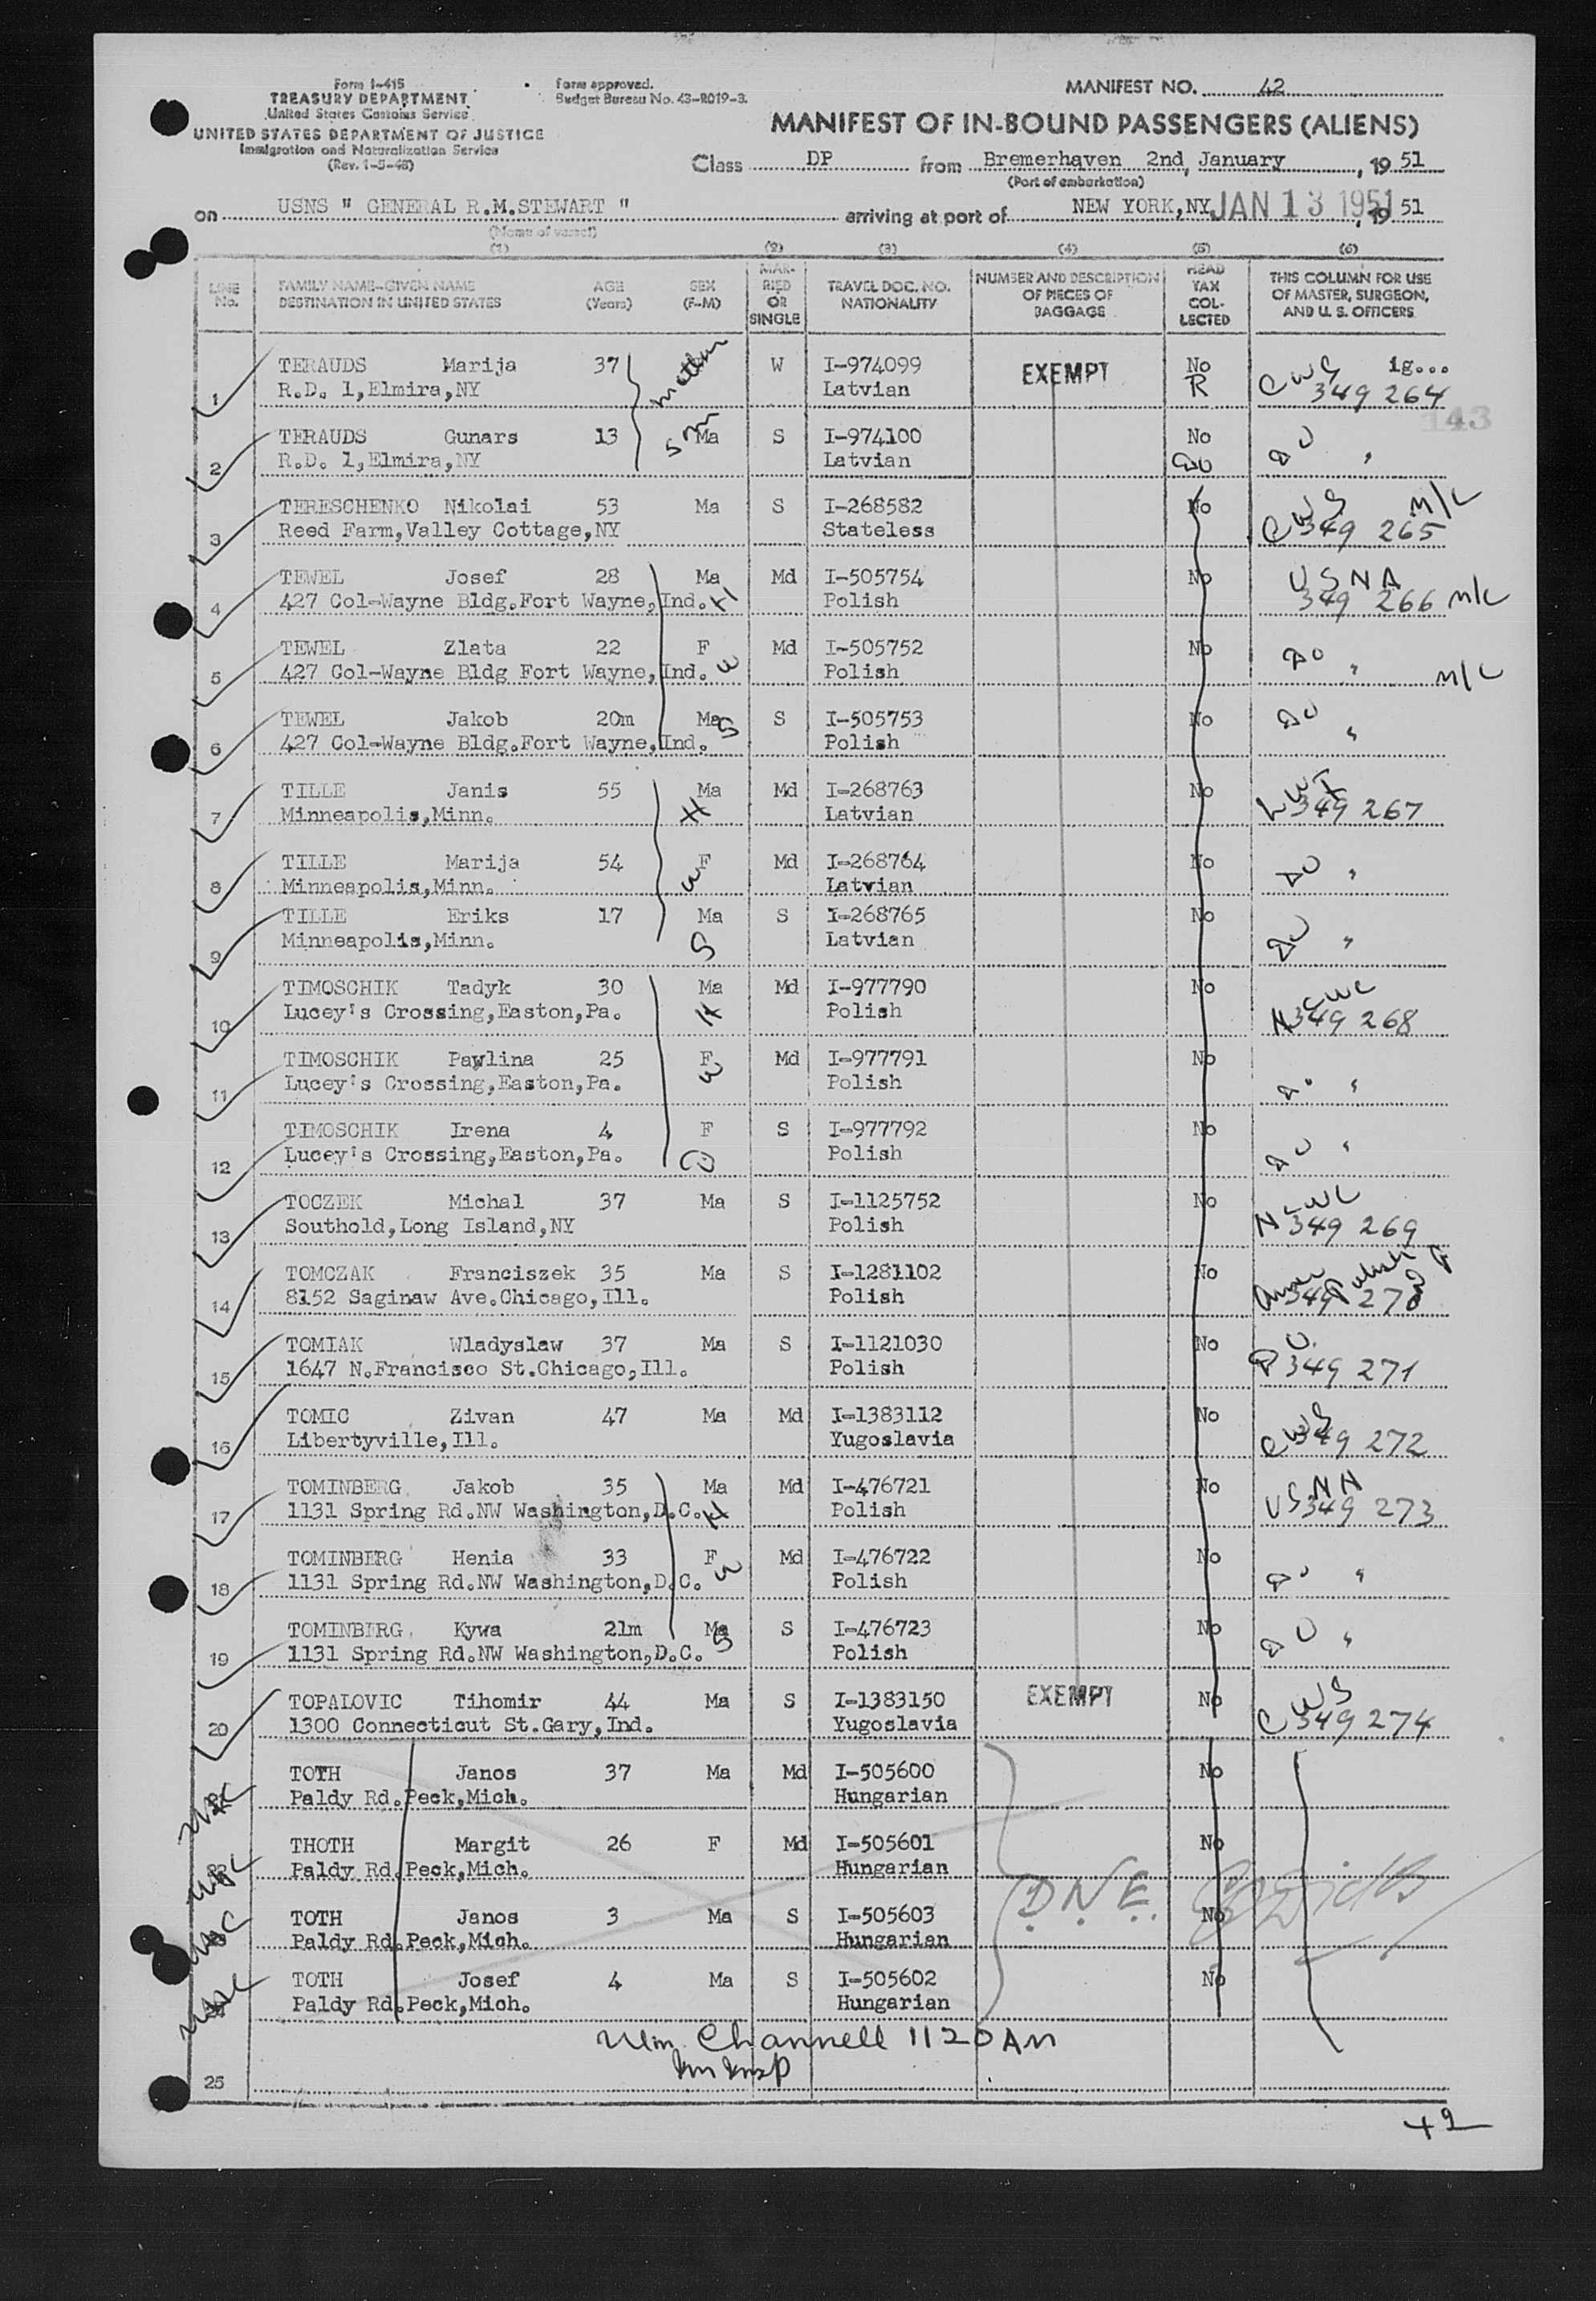 Form I-415
TREASURY DEPARTMENT
United States Customs Service
UNITED STATES DEPARTMENT OF JUSTICE
Immigration and Naturalization Service
(Rev. 1-5-48)
Form approved.
Budget Bureau No. 43-R019-3.
MANIFEST NO. 42
MANIFEST OF IN-BOUND PASSENGERS (ALIENS)
Class DP from Bremerhaven 2nd, January, 19 51
(Port of embarkation)
on USNS " GENERAL R.M.STEWART " arriving at port of NEW YORK,NY JAN 13 1951, 19 51
(Name of vessel)
(1) (2) (3) (4) (5) (6)
LINE No. FAMILY NAME-GIVEN NAME DESTINATION IN UNITED STATES AGE (Years) SEX (F-M) MARRIED OR SINGLE TRAVEL DOC. NO. NATIONALITY NUMBER AND DESCRIPTION OF PIECES OF BAGGAGE HEAD TAX COLLECTED THIS COLUMN FOR USE OF MASTER, SURGEON, AND U. S. OFFICERS
TERAUDS Marija 37 mother W I-974099 EXEMPT No CWS ig...
1 R.D. 1,Elmira,NY Latvian R 349 264
143
TERAUDS Gunars 13 son Ma S I-974100 No Do "
2 R.D. 1,Elmira,NY Latvian Do
TERESCHENKO Nikolai 53 Ma S I-268582 No CWS M/C
3 Reed Farm,Valley Cottage,NY Stateless 349 265
TEWEL Josef 28 Ma Md I-505754 No USNA
4 427 Col-Wayne Bldg.Fort Wayne,Ind. H Polish 349 266 M/C
TEWEL Zlata 22 F Md I-505752 No Do "
5 427 Col-Wayne Bldg Fort Wayne,Ind. W Polish M/C
TEWEL Jakob 20m Ma S S I-505753 No Do "
6 427 Col-Wayne Bldg.Fort Wayne,Ind. Polish
TILLE Janis 55 Ma Md I-268763 No LWF
7 Minneapolis,Minn. H Latvian 349 267
TILLE Marija 54 F Md I-268764 No Do "
8 Minneapolis,Minn. W Latvian
TILLE Eriks 17 Ma S I-268765 No Do "
9 Minneapolis,Minn. S Latvian
TIMOSCHIK Tadyk 30 Ma Md I-977790 No NCWC
10 Lucey's Crossing,Easton,Pa. H Polish 349 268
TIMOSCHIK Pawlina 25 F Md I-977791 No Do "
11 Lucey's Crossing,Easton,Pa. W Polish
TIMOSCHIK Irena 4 F S I-977792 No Do "
12 Lucey's Crossing,Easton,Pa. D Polish
TOCZEK Michal 37 Ma S I-1125752 No NCWC
13 Southold,Long Island,NY Polish 349 269
TOMCZAK Franciszek 35 Ma S I-1281102 No Amer Polish
14 8152 Saginaw Ave.Chicago,Ill. Polish 349 270
TOMIAK Wladyslaw 37 Ma S I-1121030 No Do
15 1647 N.Francisco St.Chicago,Ill. Polish 349 271
TOMIC Zivan 47 Ma Md I-1383112 No CWS
16 Libertyville,Ill. Yugoslavia 349 272
TOMINBERG Jakob 35 Ma Md I-476721 No USNA
17 1131 Spring Rd.NW Washington,D.C. H Polish 349 273
TOMINBERG Henia 33 F Md I-476722 No Do "
18 1131 Spring Rd.NW Washington,D.C. W Polish
TOMINBERG Kywa 21m Ma S S I-476723 No Do "
19 1131 Spring Rd.NW Washington,D.C. Polish
TOPALOVIC Tihomir 44 Ma S I-1383150 EXEMPT No CWS
20 1300 Connecticut St.Gary,Ind. Yugoslavia 349 274
TOTH Janos 37 Ma Md I-505600 No
Paldy Rd.Peck,Mich. Hungarian
THOTH Margit 26 F Md I-505601 No
Paldy Rd.Peck,Mich. Hungarian
D.N.E.
TOTH Janos 3 Ma S I-505603 No
Paldy Rd.Peck,Mich. Hungarian
TOTH Josef 4 Ma S I-505602 No
Paldy Rd.Peck,Mich. Hungarian
Wm Channell 1120 AM
Imm Insp
25
42